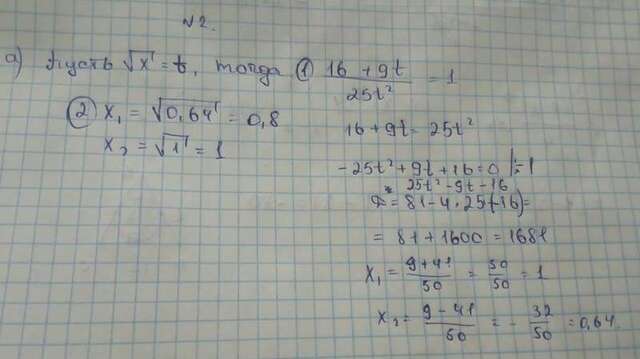 №2.
а) Пусть √x = t, тогда ① (16 + 9t)/(25t²) = 1
② x₁ = √0,64 = 0,8
x₂ = √1 = 1
16 + 9t = 25t²
-25t² + 9t + 16 = 0 |:-1
25t² - 9t - 16
D = 81 - 4 · 25(-16) =
= 81 + 1600 = 1681
x₁ = (9 + 41)/50 = 50/50 = 1
x₂ = (9 - 41)/50 = - 32/50 = 0,64.